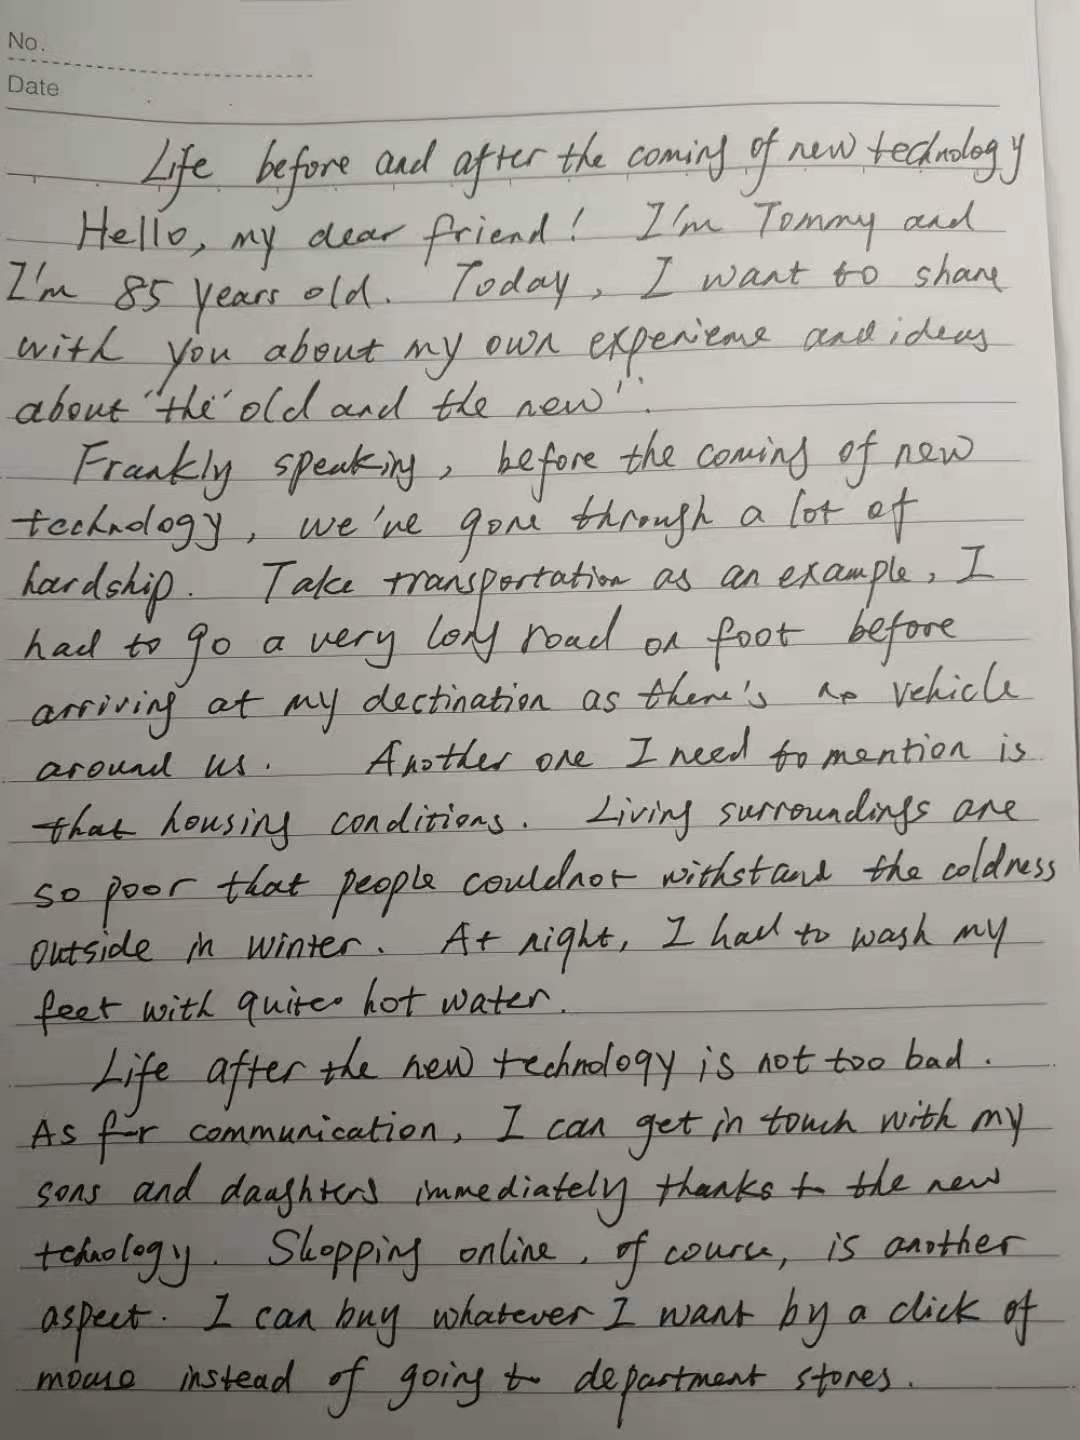 No.
Date
Life before and after the coming of new technology
Hello, my dear friend! I'm Tommy and
I'm 85 years old. Today, I want to share
with you about my own experience and ideas
about "the old and the new".
Frankly speaking, before the coming of new
technology, we've gone through a lot of
hardship. Take transportation as an example, I
had to go a very long road on foot before
arriving at my dectination as there's no vehicle
around us. Another one I need to mention is
that housing conditions. Living surroundings are
so poor that people couldnot withstand the coldness
outside in winter. At night, I had to wash my
feet with quite hot water.
Life after the new technology is not too bad.
As for communication, I can get in touch with my
sons and daughters immediately thanks to the new
tchnology. Shopping online, of course, is another
aspect. I can buy whatever I want by a click of
mouse instead of going to department stores.